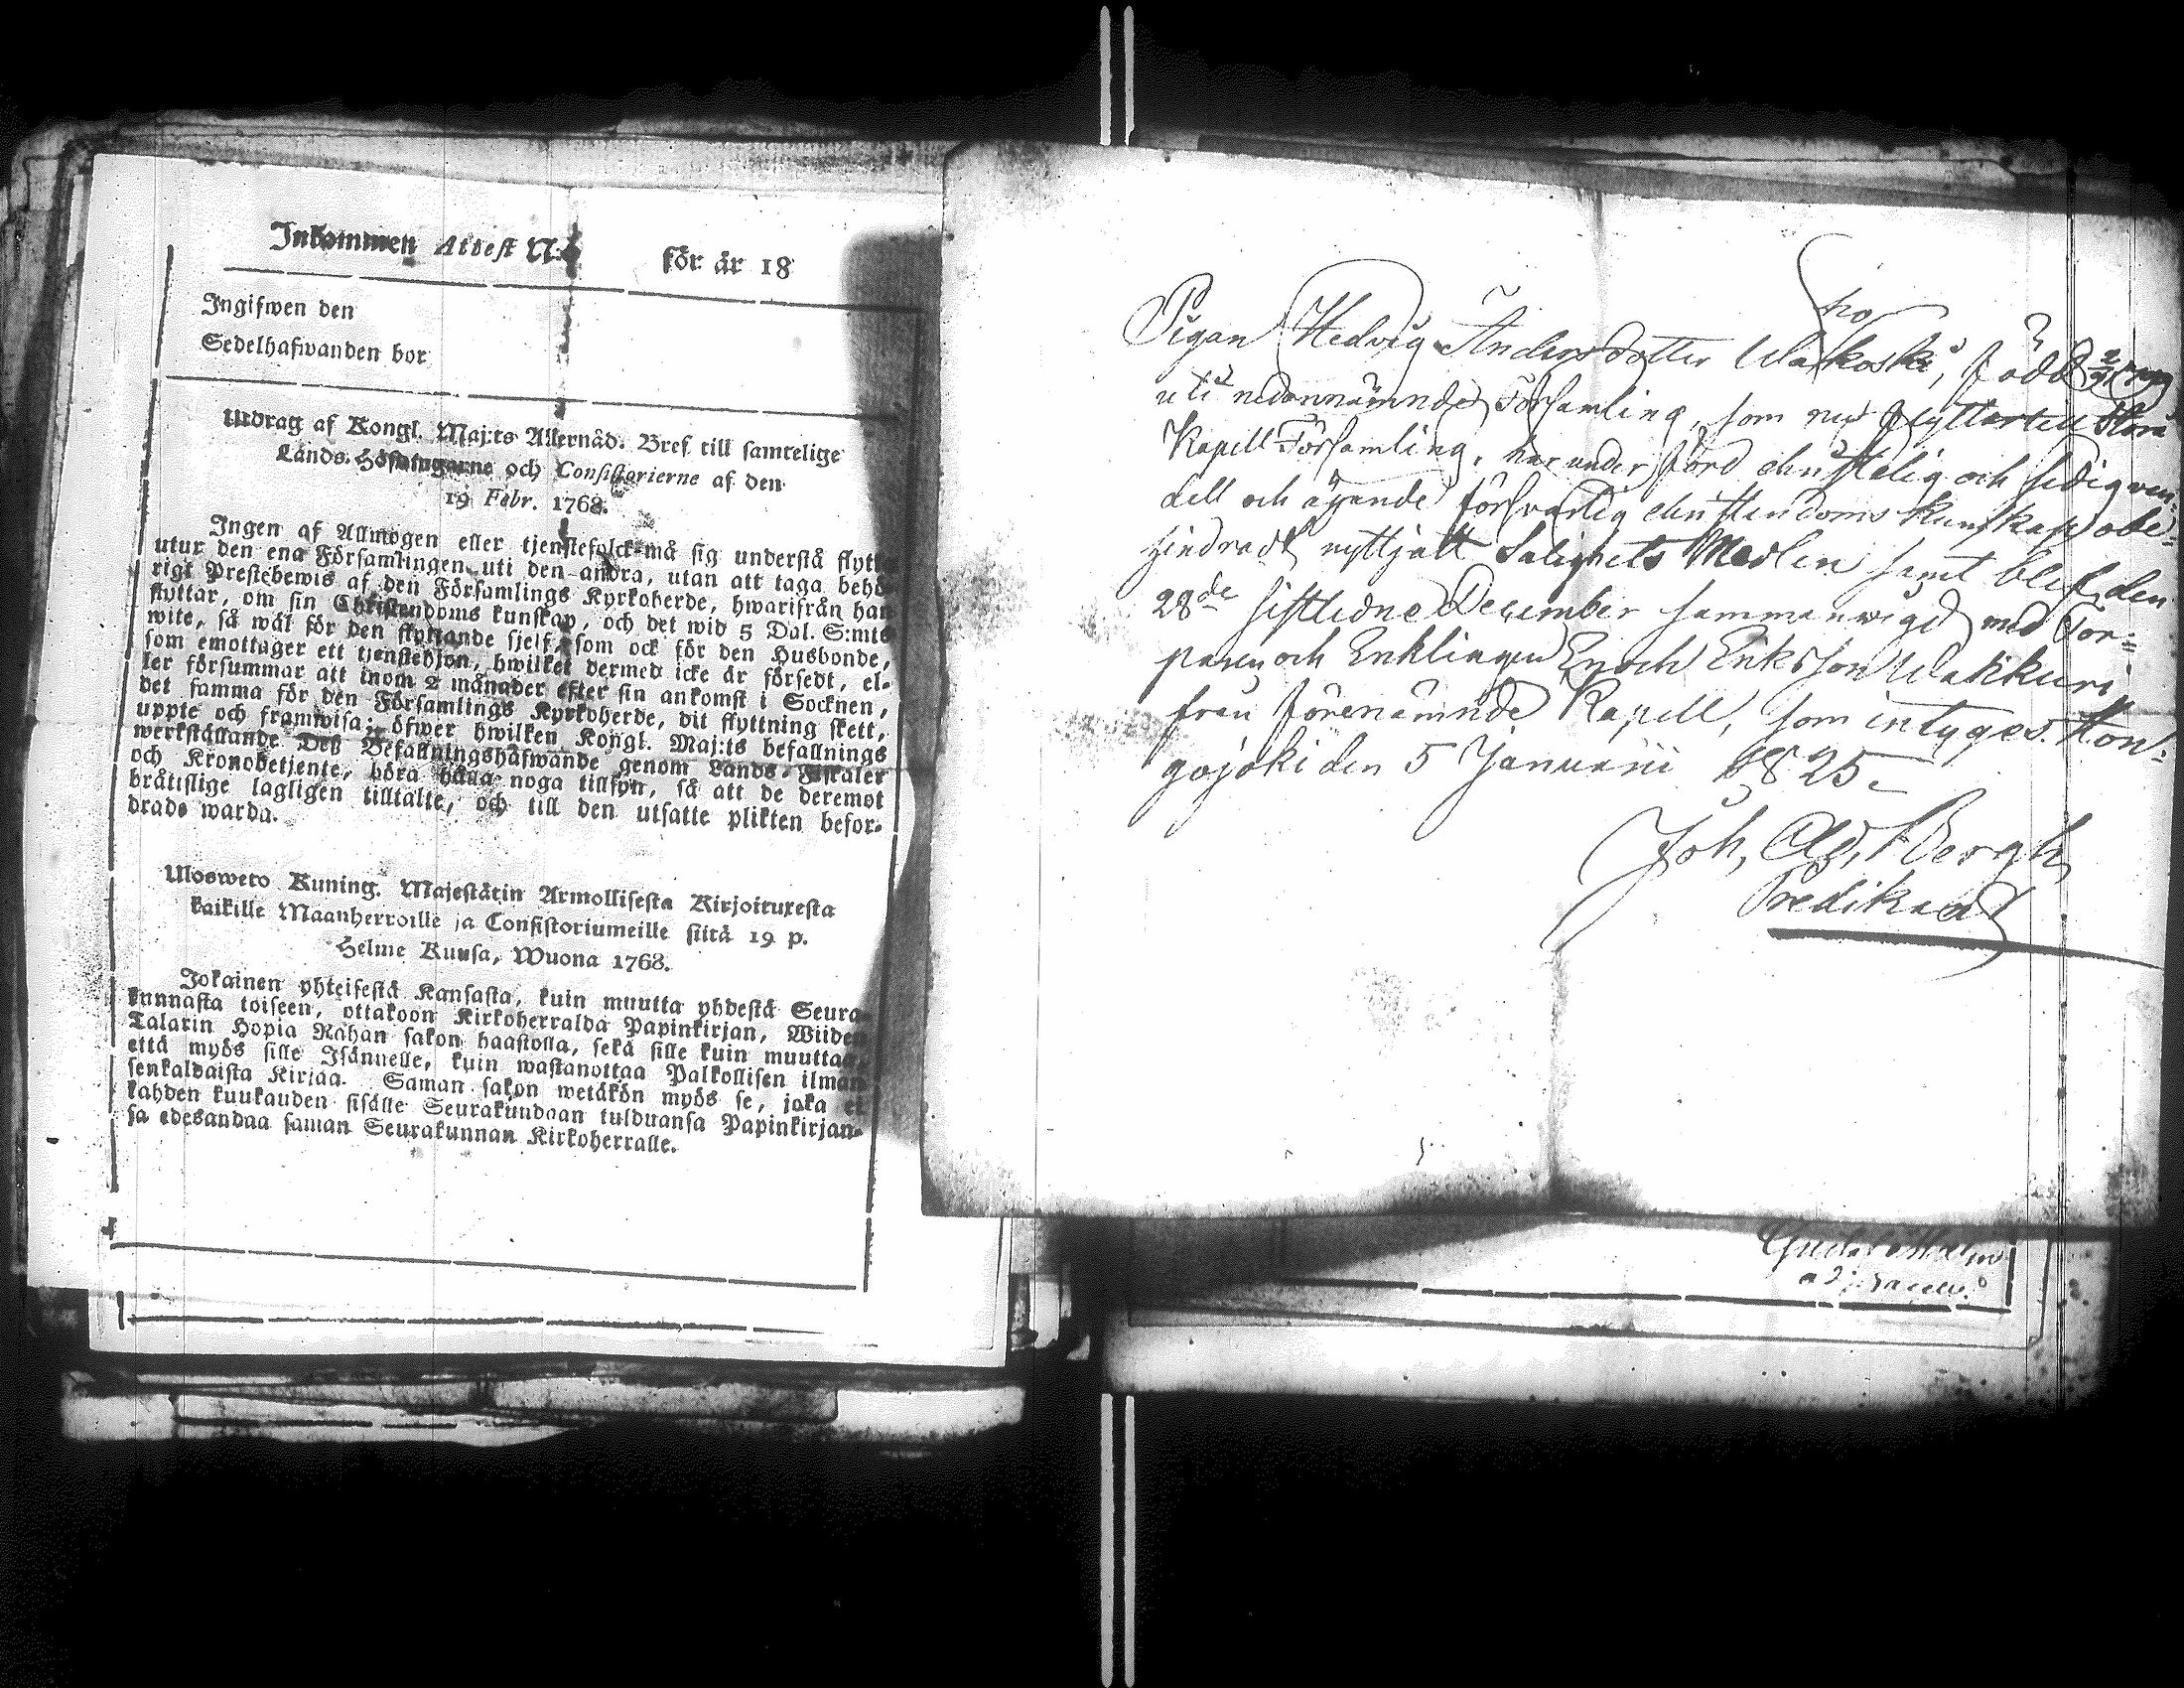 Inkommen Attest N:o för år 18
Ingifwen den
Sedelhafwanden bor
Utdrag af Kongl. Maj:ts Allernåd. Bref till samtelige
Lands-Höfdingarne och Consistorierne af den
19 Febr. 1768.
Ingen af Allmogen eller tjenstefolck må sig understå flytta
utur den ena Församlingen uti den andra, utan att taga behö-
rigt Prestebewis af den Församlings Kyrkoherde, hwarifrån han
flyttar, om sin Christendoms kunskap, och det wid 5 Dal. S:mts
wite, så wäl för den flyttande sjelf, som ock för den Husbonde,
som emottager ett tjenstehjon, hwilket dermed icke är försedt, el-
ler försummar att inom 2 månader efter sin ankomst i Socknen,
det samma för den Församlings Kyrkoherde, dit flyttning skett,
uppte och framwisa; öfwer hwilken Kongl. Maj:ts befallnings
werkställande Deß Befallningshafwande genom Lands-Fiskaler
och Kronobetjente, böra hålla noga tillsyn, så att de deremot
bråtislige lagligen tilltalte, och till den utsatte plikten befor-
drade warda.
Ulosweto Kuning. Majestätin Armollisesta Kirjoituxesta
kaikille Maanherroille ja Consistoriumeille siitä 19 p.
Helme Kuusa, Wuona 1768.
Jokainen yhteisestä Kansasta, kuin muutta yhdestä Seura-
kunnasta toiseen, ottakoon Kirkoherralda Papinkirjan, Wiiden
Talarin Hopia Rahan sakon haastolla, sekä sille kuin muuttaa,
että myös sille Isännelle, kuin wastanottaa Palkollisen ilman
senkaldaista Kirjaa. Saman sakon wetäkön myös se, joka ei
kahden kuukauden sisälle Seurakundaan tulduansa Papinkirjan-
sa edesandaa saman Seurakunnan Kirkoherralle.
Pigan Hedvig Andersdotter Wakoski, född
ho
uti nedannämnde Församling, som nu flyttar till
Kapell Församling, har under förd christelig och sedig van-
dell och ägande försvarlig christendoms kunskap obe-
hindradt nyttjatt Salighets Medlen samt blef den
28de sistledne December sammanwigd med Tor-
paren och Enklingen Enoch Eriksson Wakkuri
från förenämnde Kapell, som intyges. Kon-
gojoki den 5 Januarii 1825
Joh, Ad, Bergh
Predikant